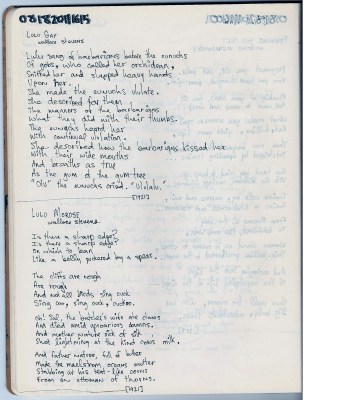 031820111615
LULU GAY
wallace stevens
Lulu sang of barbarians before the eunuchs
Of gobs, who called her orchidean,
Sniffed her and slapped heavy hands
Upon her.
She made the eunuchs ululate.
She described for them
The manners of the barbarians,
What they did with their thumbs.
The eunuchs heard her
With continual ululation.
She described how the barbarians kissed her
With their wide mouths
And breaths as true
As the gum of the gum-tree
"Olu" the eunuchs cried. "Ululalu."
[1921]
LULU MOROSE
wallace stevens
Is there a sharp edge?
Is there a sharp edge?
On which to lean
Like a belly puckered by a spear.
The cliffs are rough
Are rough
And not all birds sing cuck
Sing coo, sing cuck, cuckoo.
Oh! Sal, the butcher's wife ate clams
And died amid uproarious damns.
And mother nature sick of silk
Shot lightning at the kind cow's milk.
And father nature, full of butter
Made the maelstrom oceans mutter
Stabbing at his teat-like corns
From an ottoman of thorns.
[1921]